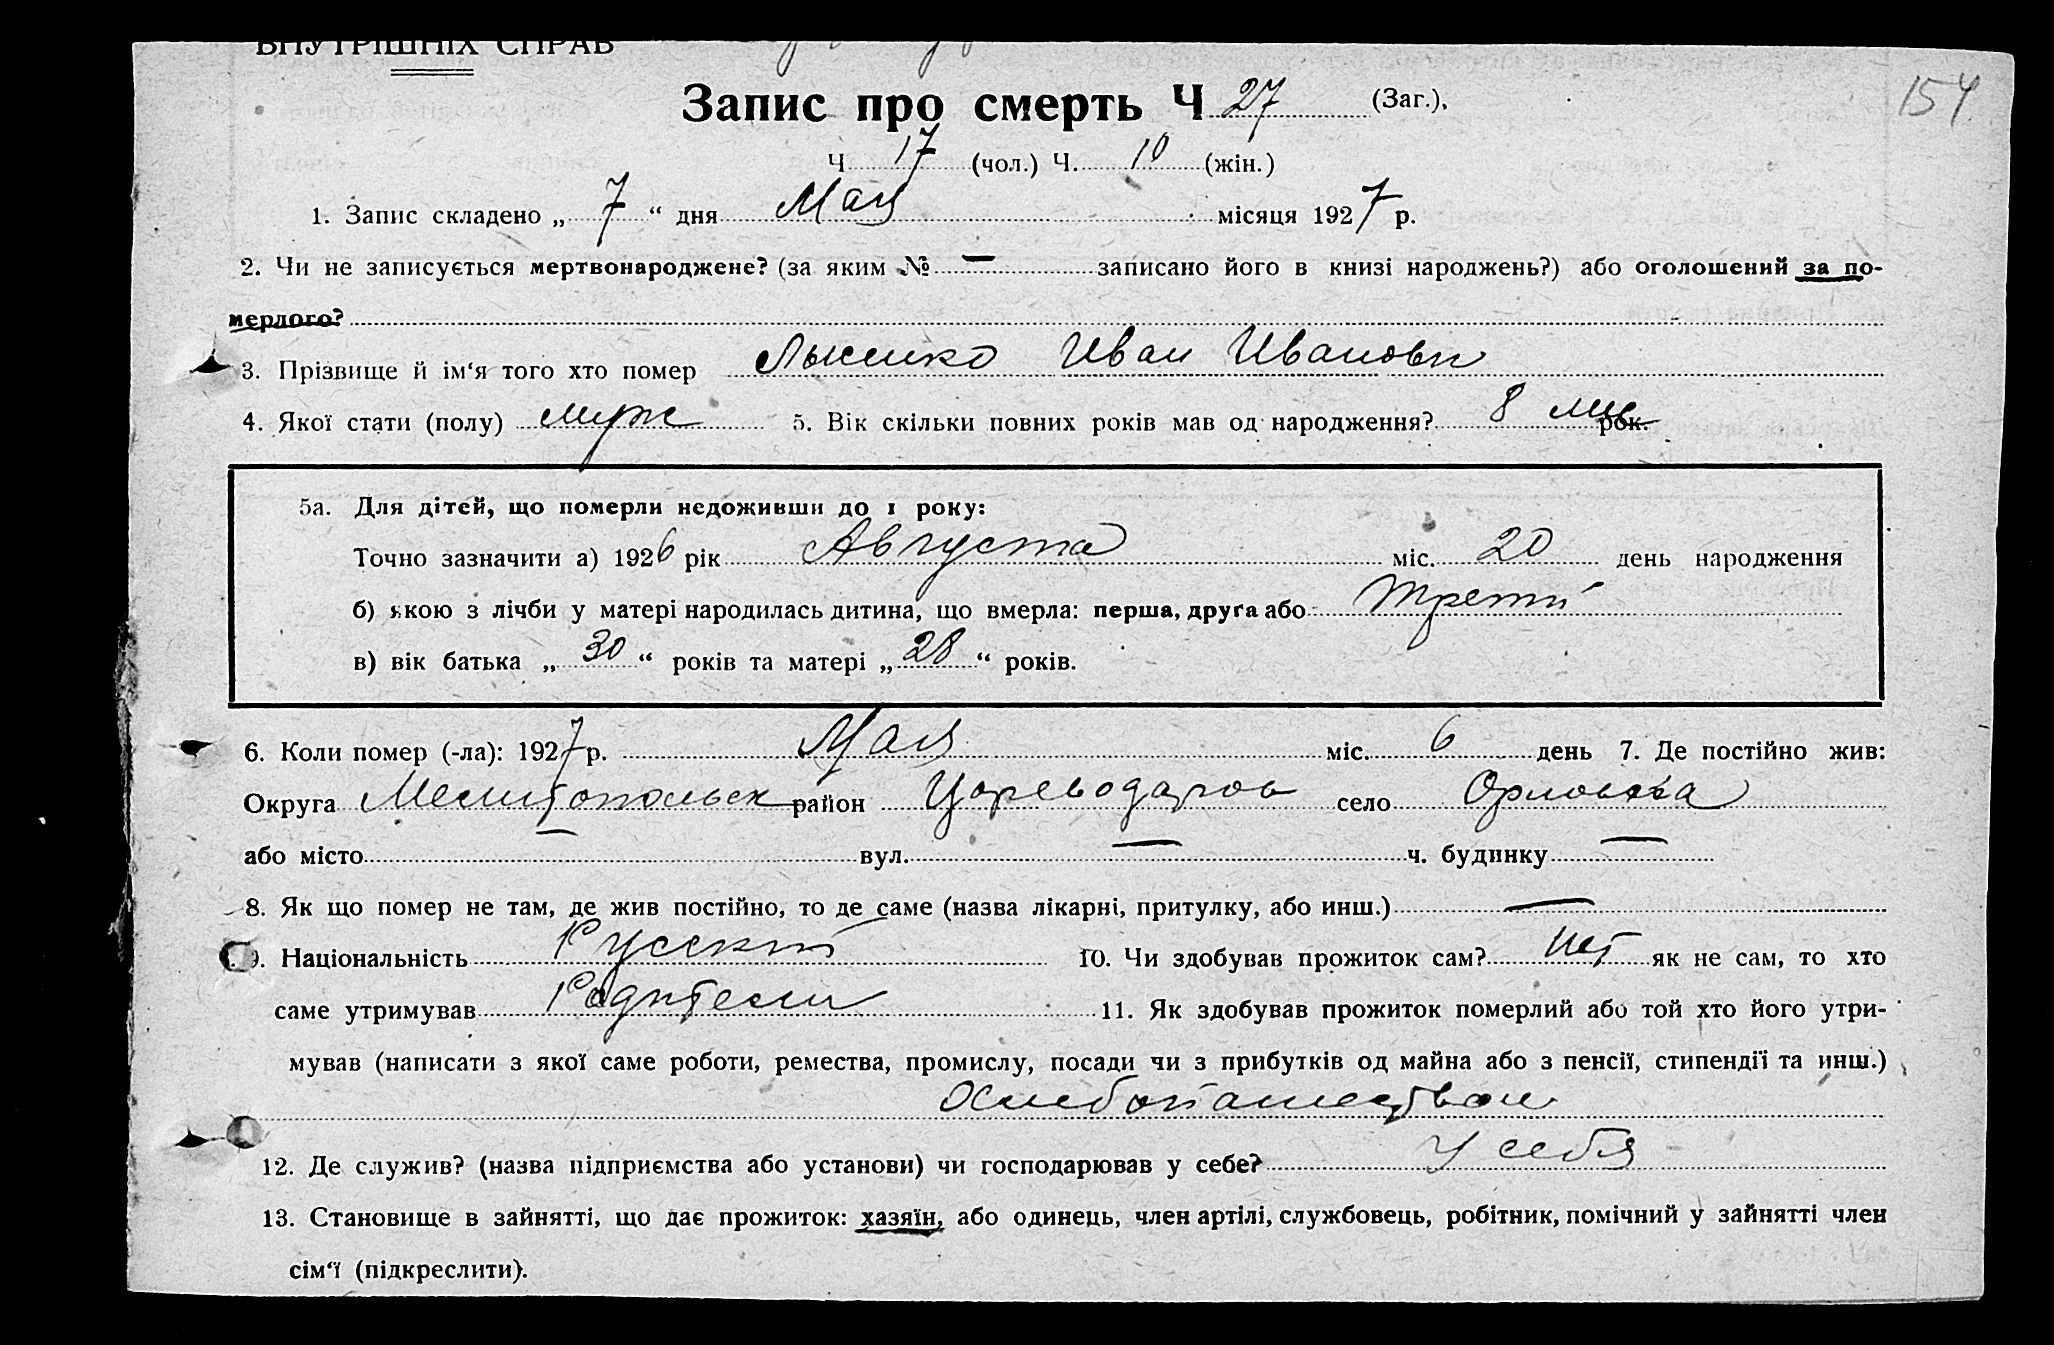 ВНУТРІШНІХ СПРАВ
154
Запис про смерть Ч 27 (Заг.),
Ч 17 (чол.) Ч. 10 (жін.)
1. Запис складено „ 7 “ дня Мая місяця 1927 р.
2. Чи не записується мертвонароджене? (за яким № — записано його в книзі народжень?) або оголошений за по-
мерлого?
3. Прізвище й ім‘я того хто помер Иван Иванови
4. Якої стати (полу) муж 5. Вік скільки повних років мав од народження? 8 мць рок.
5а. Для дітей, що померли недоживши до 1 року:
Точно зазначити а) 1926 рік Августа міс. 20 день народження
б) якою з лічби у матері народилась дитина, що вмерла: перша, друга або третий
в) вік батька „ 30 “ років та матері „ 28 “ років.
6. Коли помер (-ла): 1927 р. Мая міс. 6 день 7. Де постійно жив:
Округа Мелитопольск район Цареводаров село Орловка
або місто — вул. — ч. будинку —
8. Як що помер не там, де жив постійно, то де саме (назва лікарні, притулку, або инш.) —
9. Національність Русский 10. Чи здобував прожиток сам? Нет як не сам, то хто
саме утримував Родители 11. Як здобував прожиток померлий або той хто його утри-
мував (написати з якої саме роботи, ремества, промислу, посади чи з прибутків од майна або з пенсії, стипендії та инш.)
Хлебопашеством
12. Де служив? (назва підприємства або установи) чи господарював у себе? У себя
13. Становище в зайнятті, що дає прожиток: хазяїн, або одинець, член артілі, службовець, робітник, помічний у зайнятті член
сім‘ї (підкреслити).